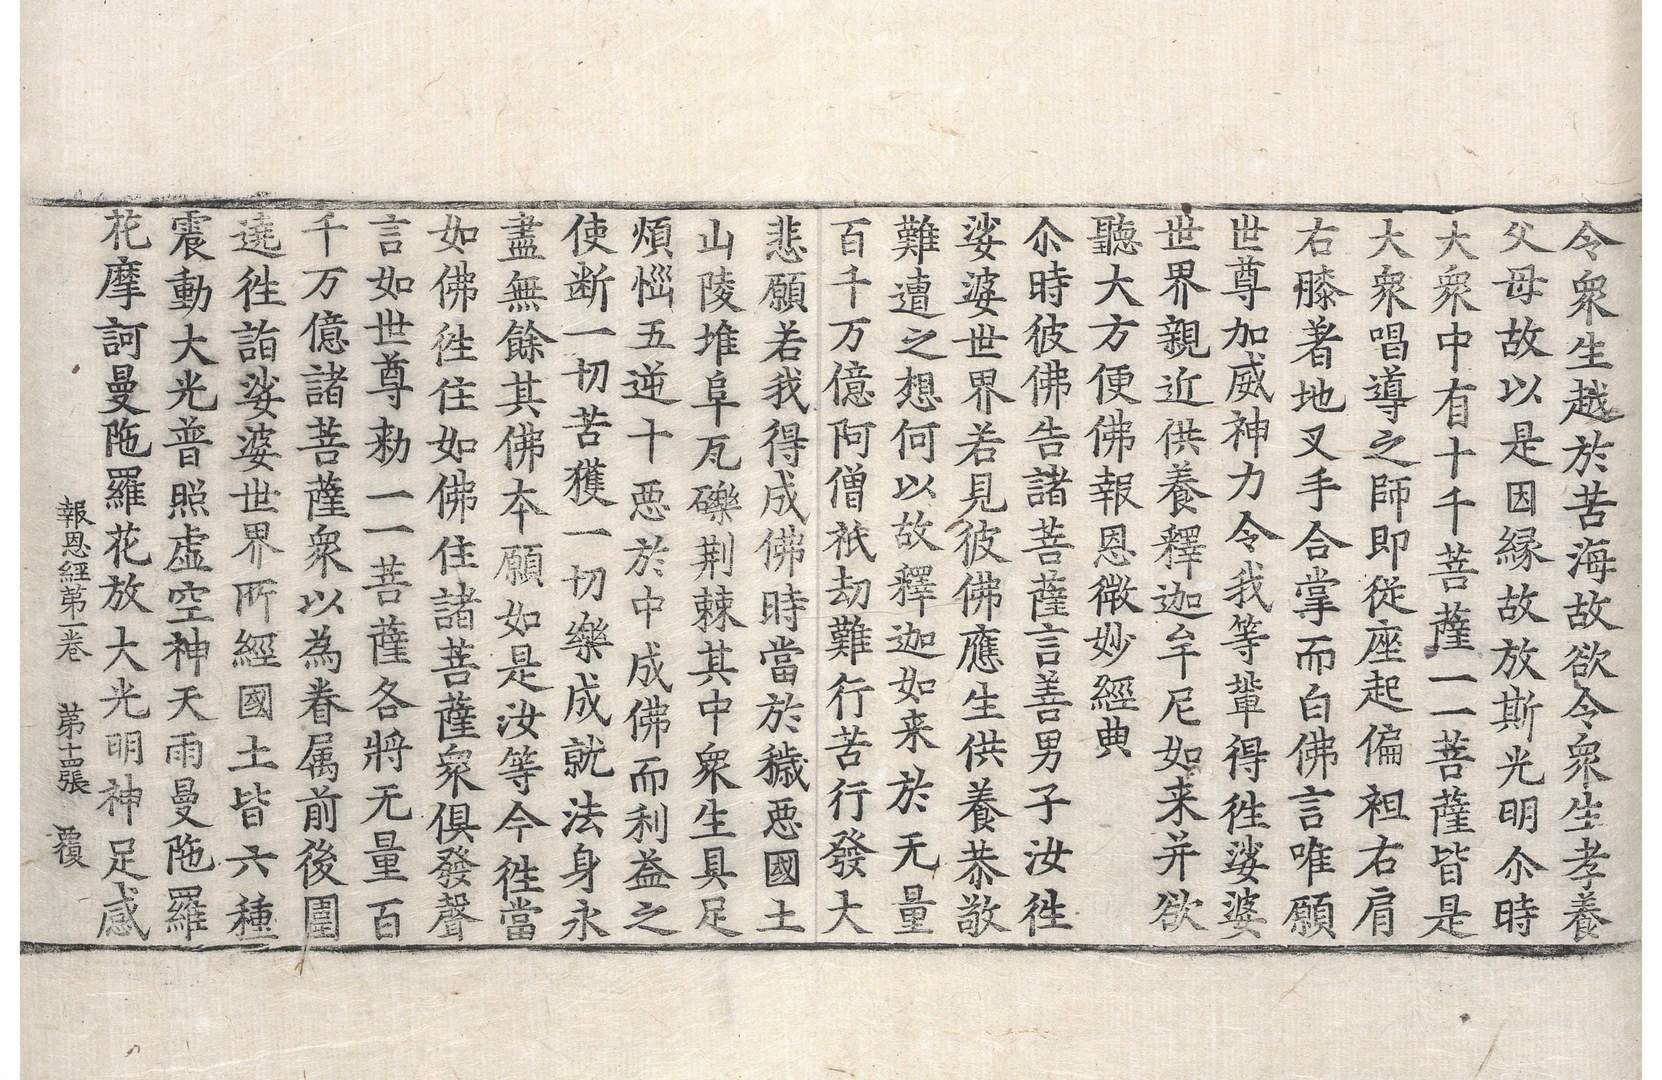 令衆生越於苦海故欲令衆生孝養
父母故以是因縁故放斯光明尒時
大衆中有十千菩薩一一菩薩皆是
大衆唱導之師即從座起偏袒右肩
右膝著地叉手合掌而白佛言唯願
世尊加威神力令我等輩得徃娑婆
世界親近供養釋迦牟尼如来并欲
聽大方便佛報恩微妙經典
尒時彼佛告諸菩薩言善男子汝徃
娑婆世界若見彼佛應生供養恭敬
難遭之想何以故釋迦如来於无量
百千万億阿僧祇劫難行苦行發大
悲願若我得成佛時當於穢惡國土
山陵堆阜瓦礫荆棘其中衆生具足
煩惱五逆十惡於中成佛而利益之
使断一切苦獲一切樂成就法身永
盡無餘其佛本願如是汝等今徃當
如佛徃住如佛住諸菩薩衆俱發聲
言如世尊勑一一菩薩各將无量百
千万億諸菩薩衆以為眷属前後圍
遶徃詣娑婆世界所經國土皆六種
震動大光普照虚空神天雨曼陁羅
花摩訶曼陁羅花放大光明神足感
報恩經第一卷　第十四張　覆